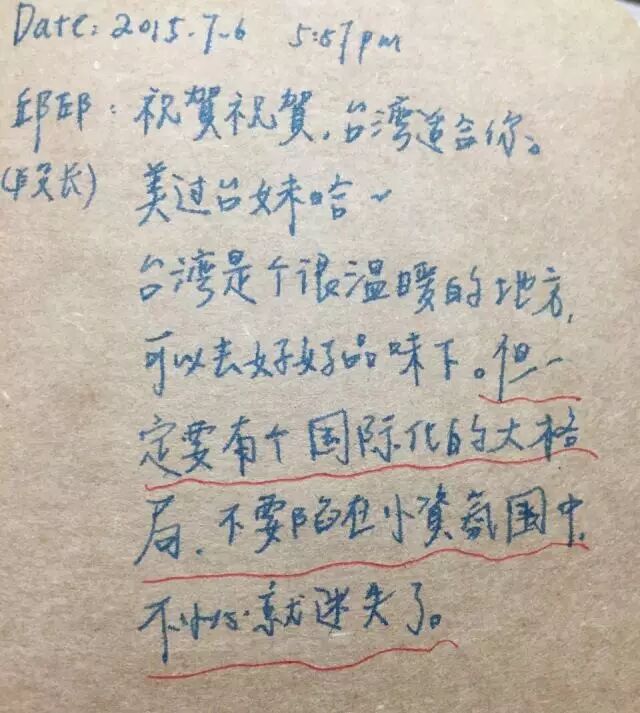 Date: 2015.7.6 5:57pm
邱邱：祝贺祝贺，台湾适合你。
(段长) 美过台妹哈~
台湾是个很温暖的地方，
可以去好好品味下。但一
定要有个国际化的大格
局，不要陷在小資氛围中，
不小心就迷失了。